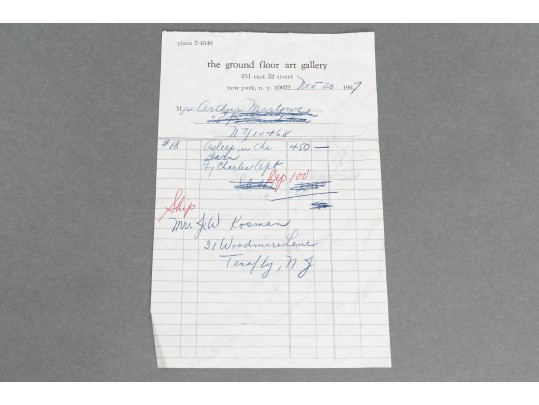 plaza 3-4140
the ground floor art gallery
251 east 52 street
new york, n. y. 10022 Nov 26 1967
Mr. Arthur Marlowe
#18 Asleep in the 450 —
Barn
By Charles Apt
Dep 100
Ship
Mrs. J. W Kosman
31 Woodmere Lane
Tenafly, N J